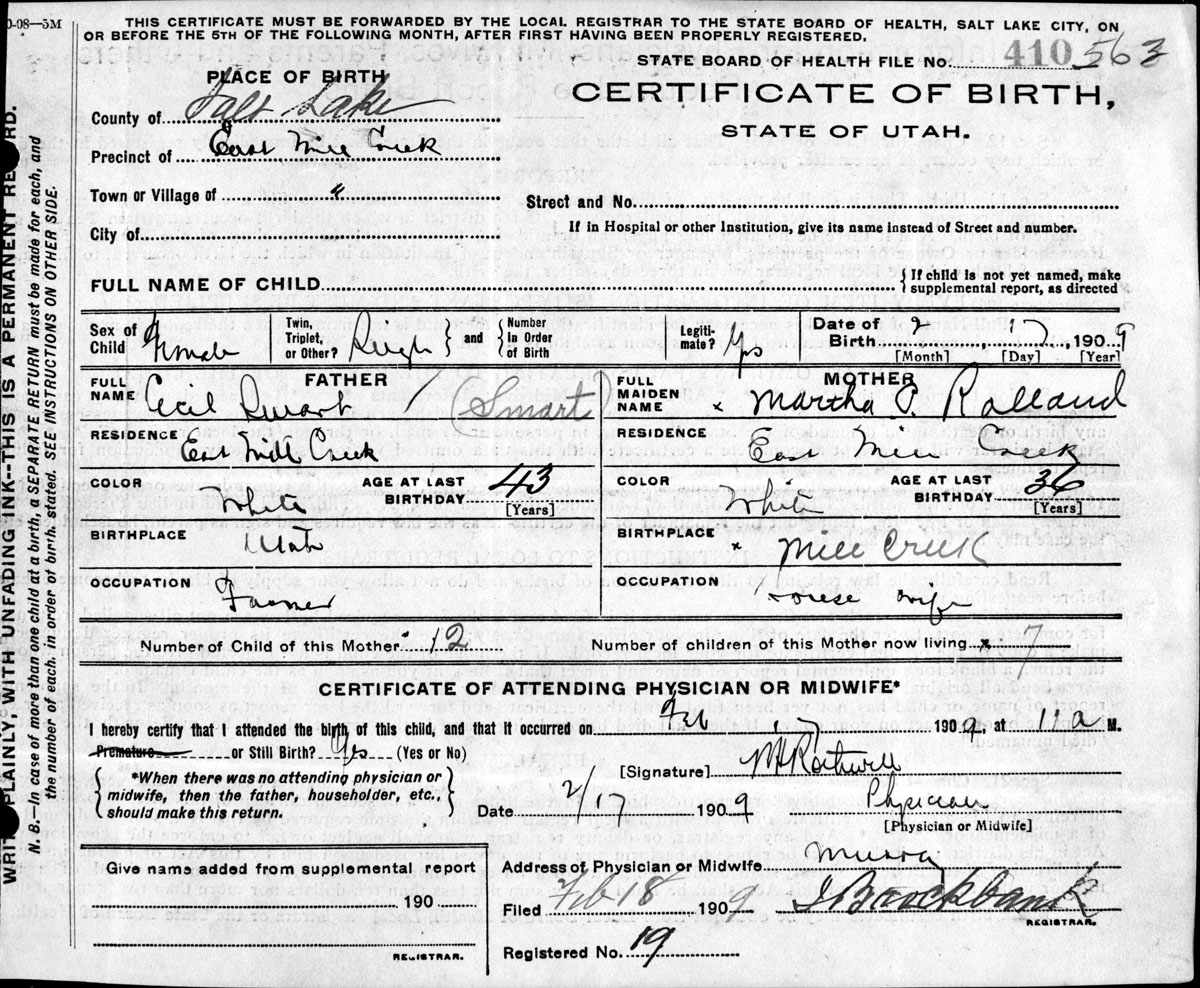 0-08—5M
THIS CERTIFICATE MUST BE FORWARDED BY THE LOCAL REGISTRAR TO THE STATE BOARD OF HEALTH, SALT LAKE CITY, ON
OR BEFORE THE 5TH OF THE FOLLOWING MONTH, AFTER FIRST HAVING BEEN PROPERLY REGISTERED.
STATE BOARD OF HEALTH FILE No. 410 563
PLACE OF BIRTH
CERTIFICATE OF BIRTH,
STATE OF UTAH.
County of Salt Lake
Precinct of East Mill Creek
Town or Village of "
Street and No.
City of
If in Hospital or other Institution, give its name instead of Street and number.
FULL NAME OF CHILD { If child is not yet named, make
supplemental report, as directed
Sex of Child Female Twin, Triplet, or Other? } and { Number In Order of Birth Legiti-mate? Yes Date of Birth 2 17, 1909
[Month] [Day] [Year]
FATHER MOTHER
FULL NAME Cecil Smart (Smart) FULL MAIDEN NAME x Martha P. Rolland
RESIDENCE East Mill Creek RESIDENCE East Mill Creek
COLOR White AGE AT LAST BIRTHDAY 43 [Years] COLOR White AGE AT LAST BIRTHDAY 36 [Years]
BIRTHPLACE Utah BIRTHPLACE x Mill Creek
OCCUPATION Farmer OCCUPATION House wife
Number of Child of this Mother 12 Number of children of this Mother now living x 7
CERTIFICATE OF ATTENDING PHYSICIAN OR MIDWIFE*
I hereby certify that I attended the birth of this child, and that it occurred on Feb 17 1909, at 11 a M.
Premature or Still Birth? Yes (Yes or No)
{ *When there was no attending physician or
midwife, then the father, householder, etc.,
should make this return. }
[Signature] M Rothwell
Date 2/17 1909 Physician
[Physician or Midwife]
Give name added from supplemental report
190
REGISTRAR.
Address of Physician or Midwife Murray
Filed Feb 18 1909 Brockbank
REGISTRAR.
Registered No. 19
WRITE PLAINLY, WITH UNFADING INK--THIS IS A PERMANENT RECORD.
N. B.—In case of more than one child at a birth, a SEPARATE RETURN must be made for each, and
the number of each, in order of birth, stated. SEE INSTRUCTIONS ON OTHER SIDE.